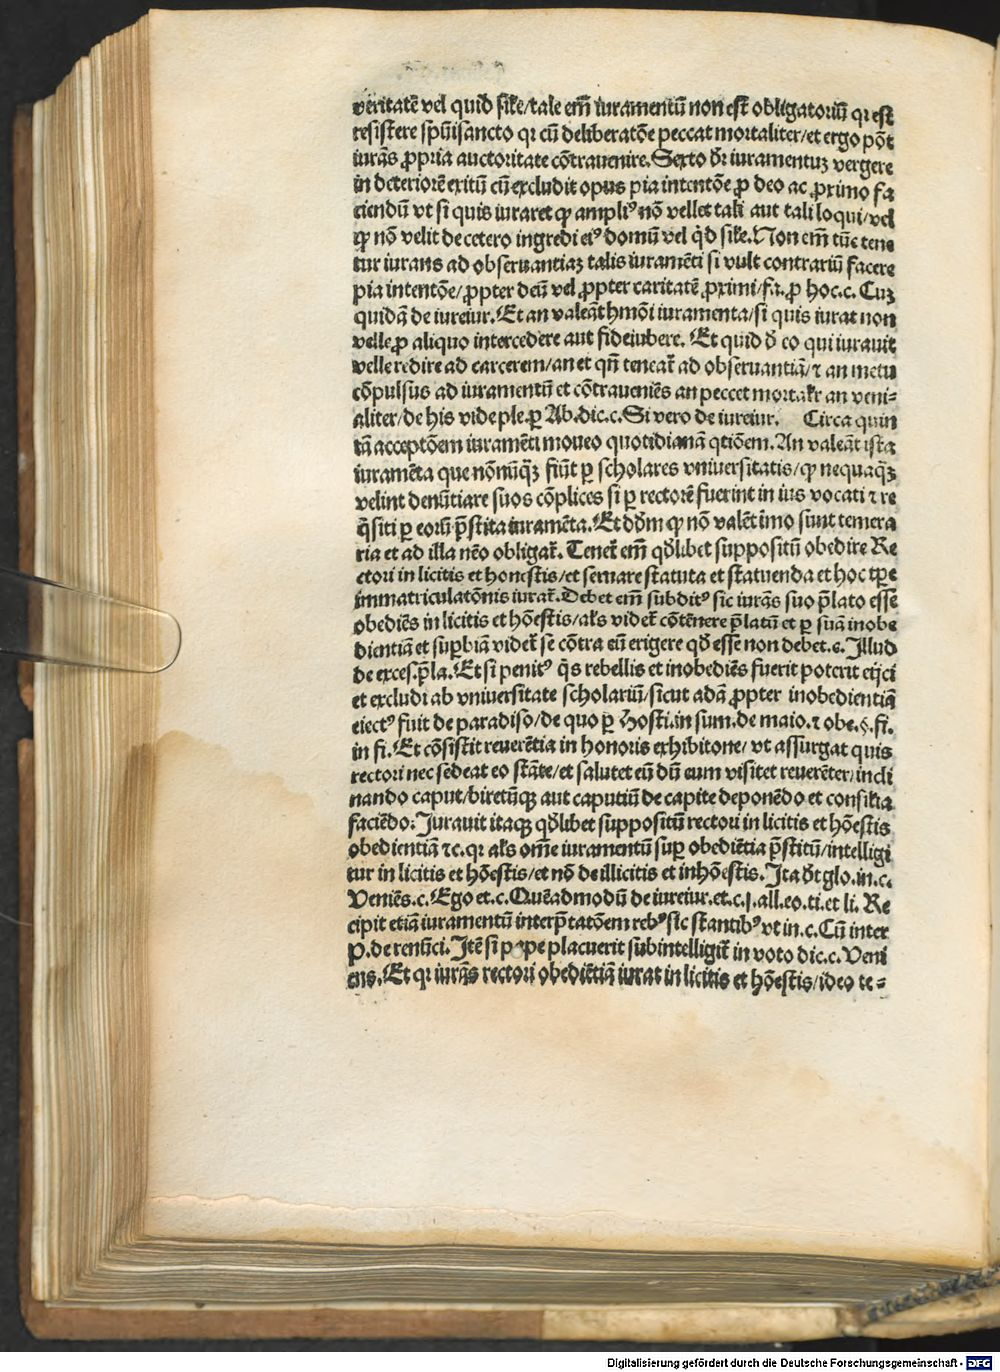 veritatē vel quid sil'e/tale em̄ iuramentū non est obligatoriū qr est
resistere sp̄uisancto qr cū deliberatōe peccat mortaliter/et ergo pōt
iurās ꝓpria auctoritate cōtrauenire. Sexto dr̄ iuramentuꝫ vergere
in deteriorē exitū cū excludit opus pia intentōe ꝓ deo ac ꝓximo fa
ciendū vt si quis iuraret ꝙ ampliꝰ nō vellet tali aut tali loqui/vel
ꝙ nō velit decetero ingredi eiꝰ domū vel qd̓ sil'e. Non em̄ tūc tene
tur iurans ad obseruantiaꝫ talis iuramēti si vult contrariū facere
pia intentōe/ꝓpter deū vel ꝓpter caritatē ꝓximi/fa. ꝓ hoc.c. Cuꝫ
quidā de iureiur. Et an valeāt hmōi iuramenta/si quis iurat non
velle ꝓ aliquo intercedere aut fideiubere. Et quid d̓ eo qui iurauit
velle redire ad carcerem/an et qn̄ teneat̄ ad obseruantiā/⁊ an metu
cōpulsus ad iuramentū et cōtraueniēs an peccet mortal'r an veni⸗
aliter/de his vide ple.ꝑ Ab.dic.c. Si vero de iureiur. Circa quin
tā acceptōem iuramēti moueo quotidianā qtiōem. An valeāt ista
iuramēta que nōnūq̄ꝫ fiūt ꝑ scholares vniuersitatis/ꝙ nequaq̄ꝫ
velint denūtiare suos cōplices si ꝑ rectorē fuerint in ius vocati ⁊ re
q̄siti ꝑ eorū p̄stita iuramēta. Et dd̓m ꝙ nō valēt imo sunt temera
ria et ad illa nēo obligat̄. Tenet̄ em̄ qd̓libet suppositū obedire Re
ctori in licitis et honestis/et seruare statuta et statuenda et hoc tp̄e
immatriculatōnis iurat̄. Debet em̄ subditꝰ sic iurās suo p̄lato esse
obediēs in licitis et hōestis/al's videt̄ cōtēnere p̄latū et ꝑ suā inobe
dientiā et suꝑbiā videt̄ se cōtra eū erigere qd̓ esse non debet.c. Illud
de exces.p̄la. Et si penitꝰ q̄s rebellis et inobediēs fuerit poterit eijci
et excludi ab vniuersitate scholariū/sicut adā ꝓpter inobedientiā
eiectꝰ fuit de paradiso/de quo ꝑ Hosti.in sum.de maio.⁊ obe.§.fi.
in fi. Et cōsistit reuerētia in honoris exhibitone/ vt assurgat quis
rectori nec sedeat eo stāte/et salutet eū dū eum visitet reuerēter/incli
nando caput/biretūqꝫ aut caputiū de capite deponēdo et consilia
faciēdo: Jurauit itaqꝫ qd̓libet suppositū rectori in licitis et hōestis
obedientiā ⁊c.qr al's om̄e iuramentū suꝑ obediētia p̄stitū/intelligi
tur in licitis et hōestis/et nō de illicitis et inhōestis. Ita d̓t glo.in.c.
Veniēs.c. Ego et.c. Quēadmodū de iureiur.et.c.j.all.eo.ti.et li. Re
cipit etiā iuramentū interp̄tatōem rebꝰ sic stantibꝰ vt in.c. Cū inter
P. de renūci. Itē si pape placuerit subintelligit̄ in voto dic.c. Veni
ens. Et qr iurās rectori obediētiā iurat in licitis et hōestis/ideo te⸗
Digitalisierung gefördert durch die Deutsche Forschungsgemeinschaft - DFG